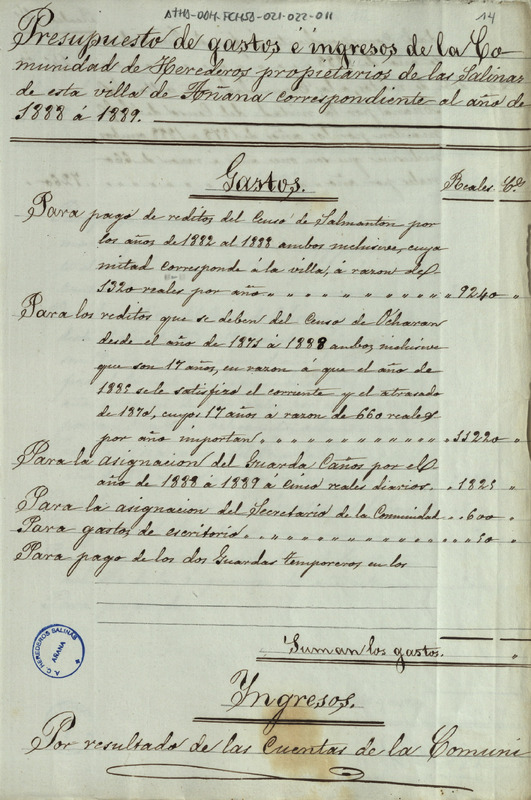 ATHA-DAH-FCH50-021-022-011
14
Presupuesto de gastos é ingresos de la Co-
munidad de Herederos propietarios de las Salinas
de esta villa de Añana correspondiente al año de
1888 á 1889.
Gastos. Reales Cs
Para pago de reditos del Censo de Salmanton por
los años de 1882 al 1888 ambos inclusive, cuya
mitad corresponde á la villa, á razon de
1320 reales por año " " " " " " " " " 9240 "
Para los reditos que se deben del Censo de Ocharan
desde el año de 1871 á 1888 ambos inclusive
que son 17 años, en razon á que el año de
1885 se le satisfizo el corriente y el atrasado
de 1870, cuyos 17 años á razon de 660 reales
por año importan " " " " " " " " " " " 11220 "
Para la asignacion del Guarda Caños por el
año de 1888 á 1889 á cinco reales diarios. " 1825 "
Para la asignacion del Secretario de la Comunidad " 600 "
Para gastos de escritorio " " " " " " " " " " 50 "
Para pago de los dos Guardas temporeros en los
Suman los gastos. "
A. C. HEREDEROS SALINAS
AÑANA
Yngresos.
Por resultado de las Cuentas de la Comuni